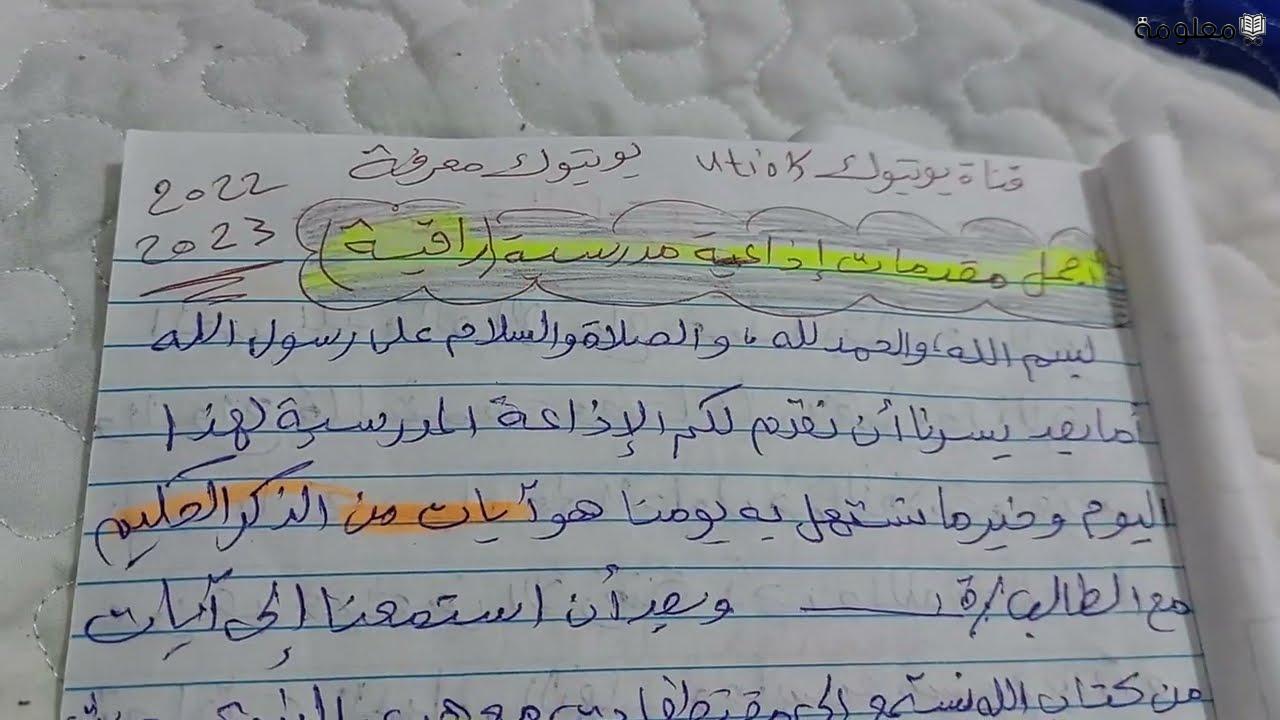 معلومة
قناة يوتيوك utiok يوتيوك معرفة
2022
2023
أجمل مقدمات إذاعية مدرسية (راقية)
بسم الله، والحمد لله، والصلاة والسلام على رسول الله
أما بعد يسرنا أن نقدم لكم الإذاعة المدرسية لهذا
اليوم وخير ما نستهل به يومنا هو آيات من الذكر الحكيم
مع الطالب/ة ــــــ وبعد أن استمعنا إلى آيات
من كتاب الله نستمع إلى